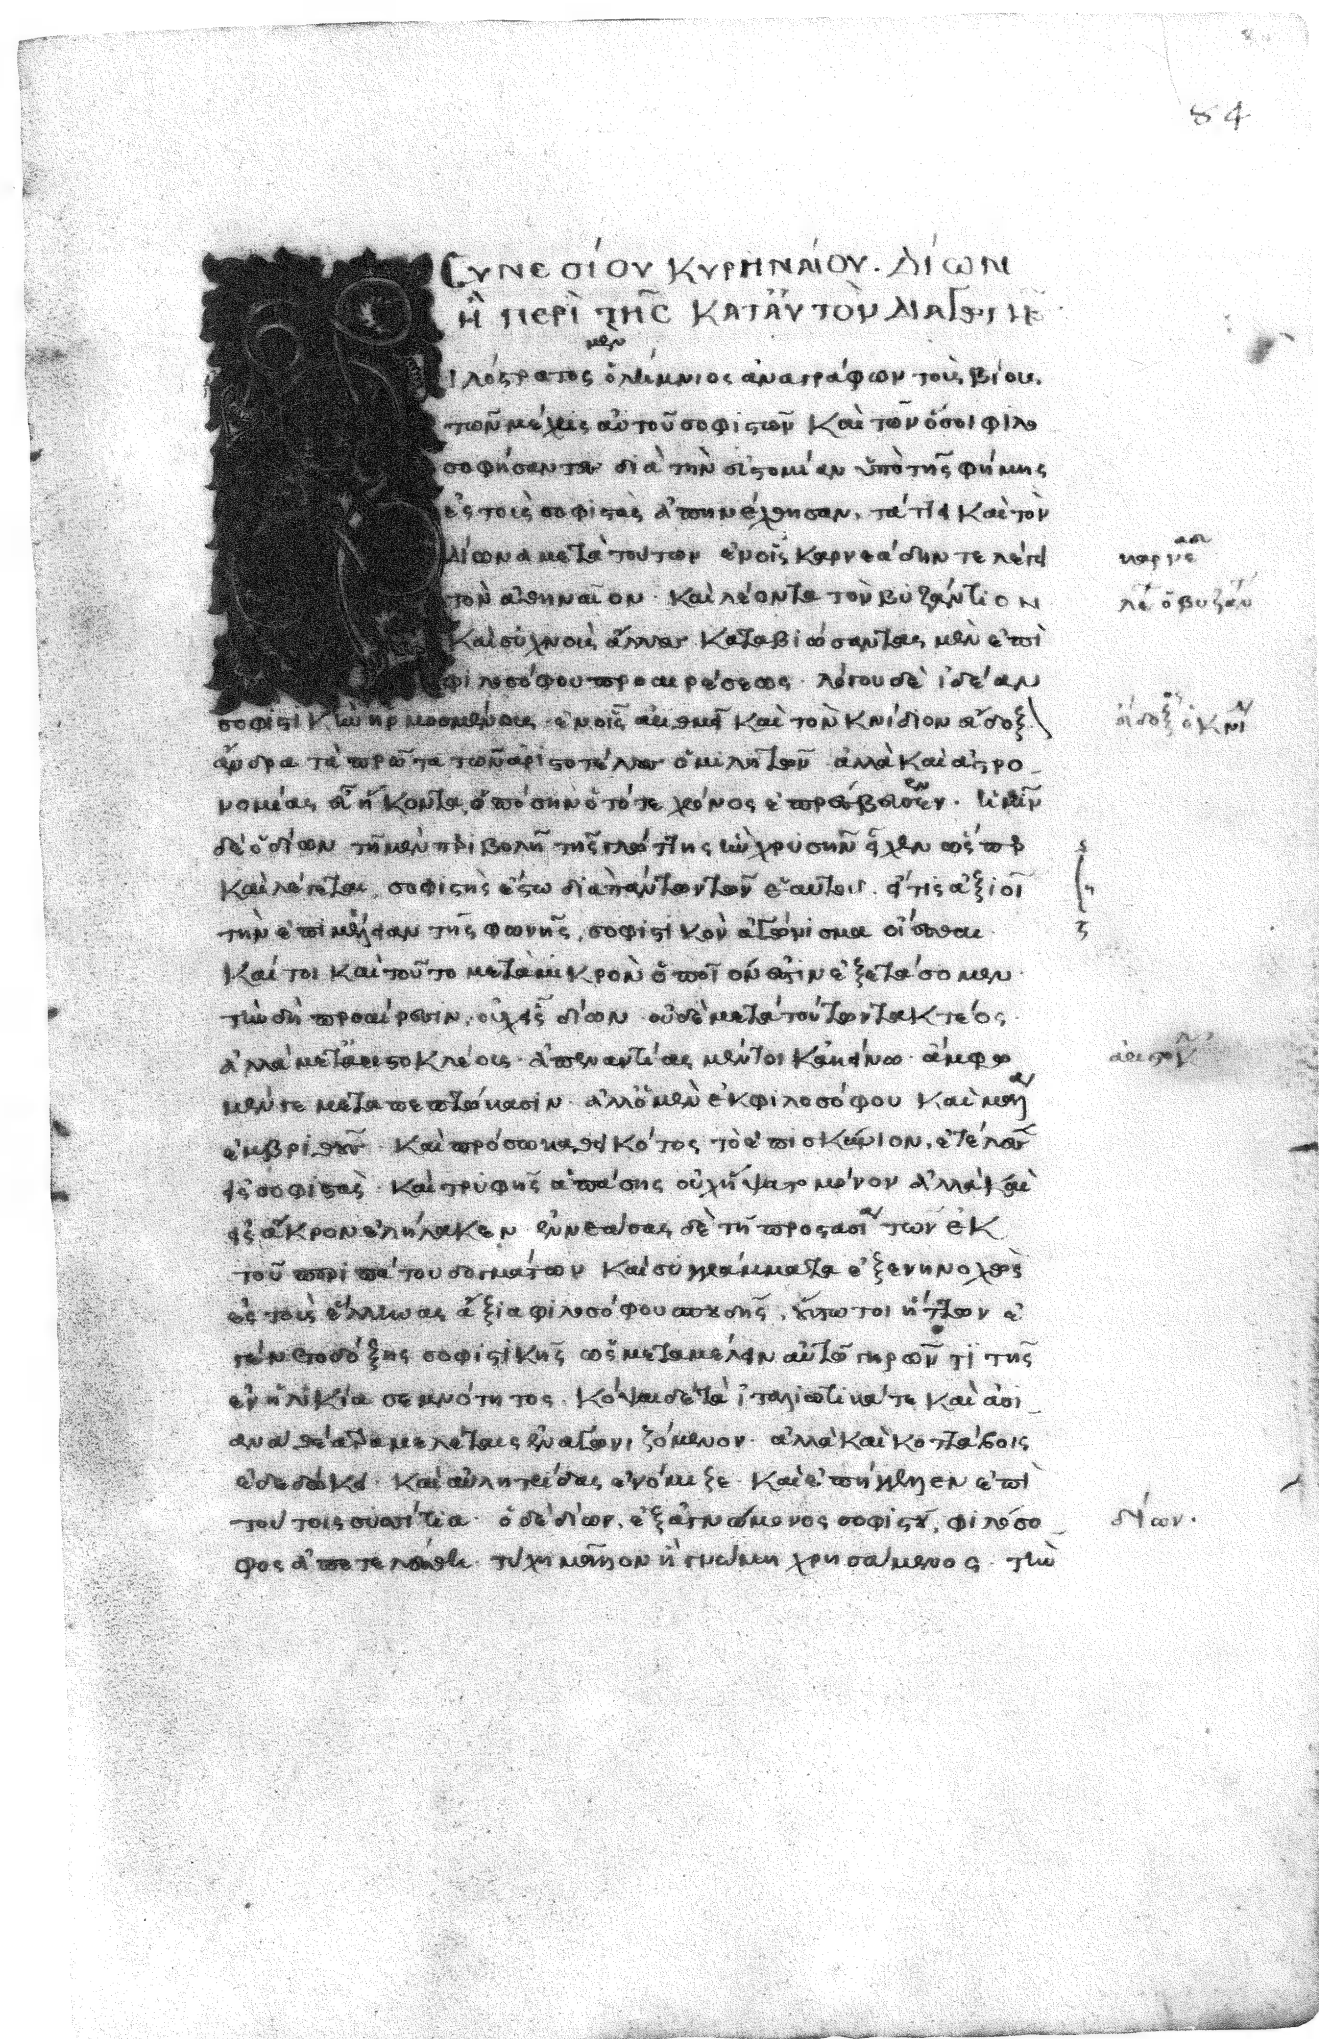 84
Συνεσίου Κυρηναίου. Δίων
ἢ περὶ τῆς κατ' αὐτὸν διαγωγῆς
μὲν
ιλόστρατος ὁ Λήμνιος ἀναγράφων τοὺς βίους
τῶν μέχρις αὐτοῦ σοφιστῶν καὶ τῶν ὅσοι φιλο
σοφήσαντες διὰ τὴν εὐστομίαν ὑπὸ τῆς φήμης
ἐς τοὺς σοφιστὰς ἀπηνέχθησαν, τάττει καὶ τὸν
Δίωνα μετὰ τούτων ἐν οἷς Καρνεάδην τε λέγει
τὸν ἀθηναῖον καὶ Λέοντα τὸν βυζάντιον
καὶ συχνοὺς ἄλλους καταβιώσαντας μὲν ἐπὶ
φιλοσόφου προαιρέσεως λόγου δὲ ἰδέαν
σοφιστικὴν ἡρμοσμένους ἐν οἷς ἀριθμεῖ καὶ τὸν κνίδιον εὔδοξ
ἄνδρα τὰ πρῶτα τῶν ἀριστοτέλους ὁμιλητῶν ἀλλὰ καὶ ἀστρο
νομίας εὖ ἥκοντα, ὁπόσην ὁ τότε χρόνος ἐπρέσβευεν. ἡμῖν
δὲ ὁ δίων τῇ μὲν περιβολῇ τῆς γλώττης ἣν χρυσῆν εἶχεν ὥσπερ
καὶ λέγεται, σοφιστὴς ἔστω διὰ πάντων τῶν ἑαυτοῦ. εἴ τις ἀξιοῖ
τὴν ἐπιμέλειαν τῆς φωνῆς, σοφιστικὸν ἀγώνισμα οἴεσθαι
καίτοι καὶ τοῦτο μετὰ μικρὸν ὁποῖόν ἐστιν ἐξετάσομεν
τὴν δὲ προαίρεσιν, οὐχ εἷς δίων οὐδὲ μετὰ τούτων τακτέος
ἀλλὰ μετ' ἀριστοκλέους ἀπεναντίας μέντοι κἀκείνω ἄμφω
μέν γε μεταπεπτώκασιν ἀλλ' ὁ μὲν ἐκ φιλοσόφου καὶ μάλα
ἐμβριθοῦς καὶ πρόσω καθεικότος τὸ ἐπισκύνιον, ἐτέλεσεν
εἰς σοφιστὰς καὶ τρυφῆς ἁπάσης οὐχ ἥψατο μόνον ἀλλὰ καὶ
εἰς ἄκρον ἐλήλακεν ἐννεάσας δὲ τῇ προστασίᾳ τῶν ἐκ
τοῦ περιπάτου δογμάτων καὶ συγγράμματα ἐξενηνοχὼς
ἐς τοὺς ἕλληνας ἄξια φιλοσόφου σπουδῆς, οὕτω τοι ἥττων ἐ
γένετο δόξης σοφιστικῆς ὡς μεταμέλειν αὐτῷ γηρῶντι τῆς
ἐν ἡλικίᾳ σεμνότητος κόψαι δὲ τὰ ἰταλιωτικά τε καὶ ἀσι
ανὰ θέατρα μελέταις ἐναγωνιζόμενον ἀλλὰ καὶ κοττάβοις
ἐδεδώκει καὶ αὐλητρίδας ἐνόμιζε καὶ ἐπήγγελλεν ἐπὶ
τούτοις συσσίτια ὁ δὲ δίων, ἐξ ἀγνώμονος σοφιστοῦ, φιλόσο
φος ἀπετελέσθη τύχῃ μᾶλλον ἢ γνώμῃ χρησάμενος τὴν
καρνεαδ
λέ ὁ βυζάν
εὔδοξ ὁ κνί
ἀριστοκλ
δίων.